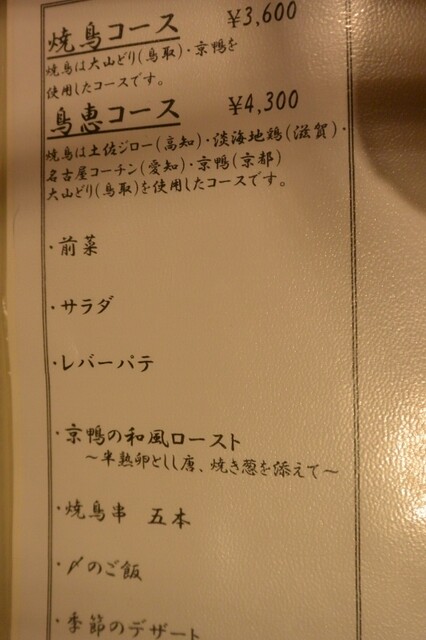 焼鳥コース ¥3,600
焼鳥は大山どり(鳥取)・京鴨を
使用したコースです。
鳥恵コース ¥4,300
焼鳥は土佐ジロー(高知)・淡海地鶏(滋賀)・
名古屋コーチン(愛知)・京鴨(京都)
大山どり(鳥取)を使用したコースです。
・前菜
・サラダ
・レバーパテ
・京鴨の和風ロースト
～半熟卵としし唐、焼き葱を添えて～
・焼鳥串 五本
・〆のご飯
・季節のデザート